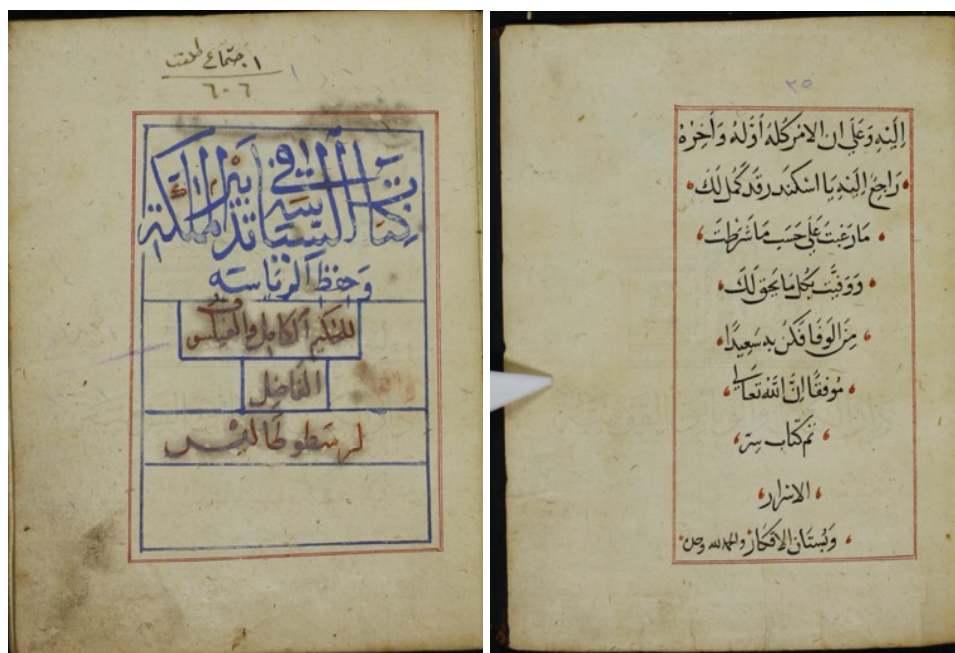 اجتماع طلعت
٦٠٦
كتاب السياسة في تدبير المملكة
وحفظ الرئاسه
للحكيم الكامل والفيلسوف
الفاضل
ارسطوطاليس
٣٥
اليه وعلى ان الامر كله اوله وآخره
راجع اليه يا اسكندر قد كمل لك
ما رغبت على حسب ما شرطت
ووفيت بكل ما يحق لك
من الوفا فكن به سعيدا
موفقا ان الله تعالى
تم كتاب سر
الاسرار
وبستان الافكار والحمد لله وحده